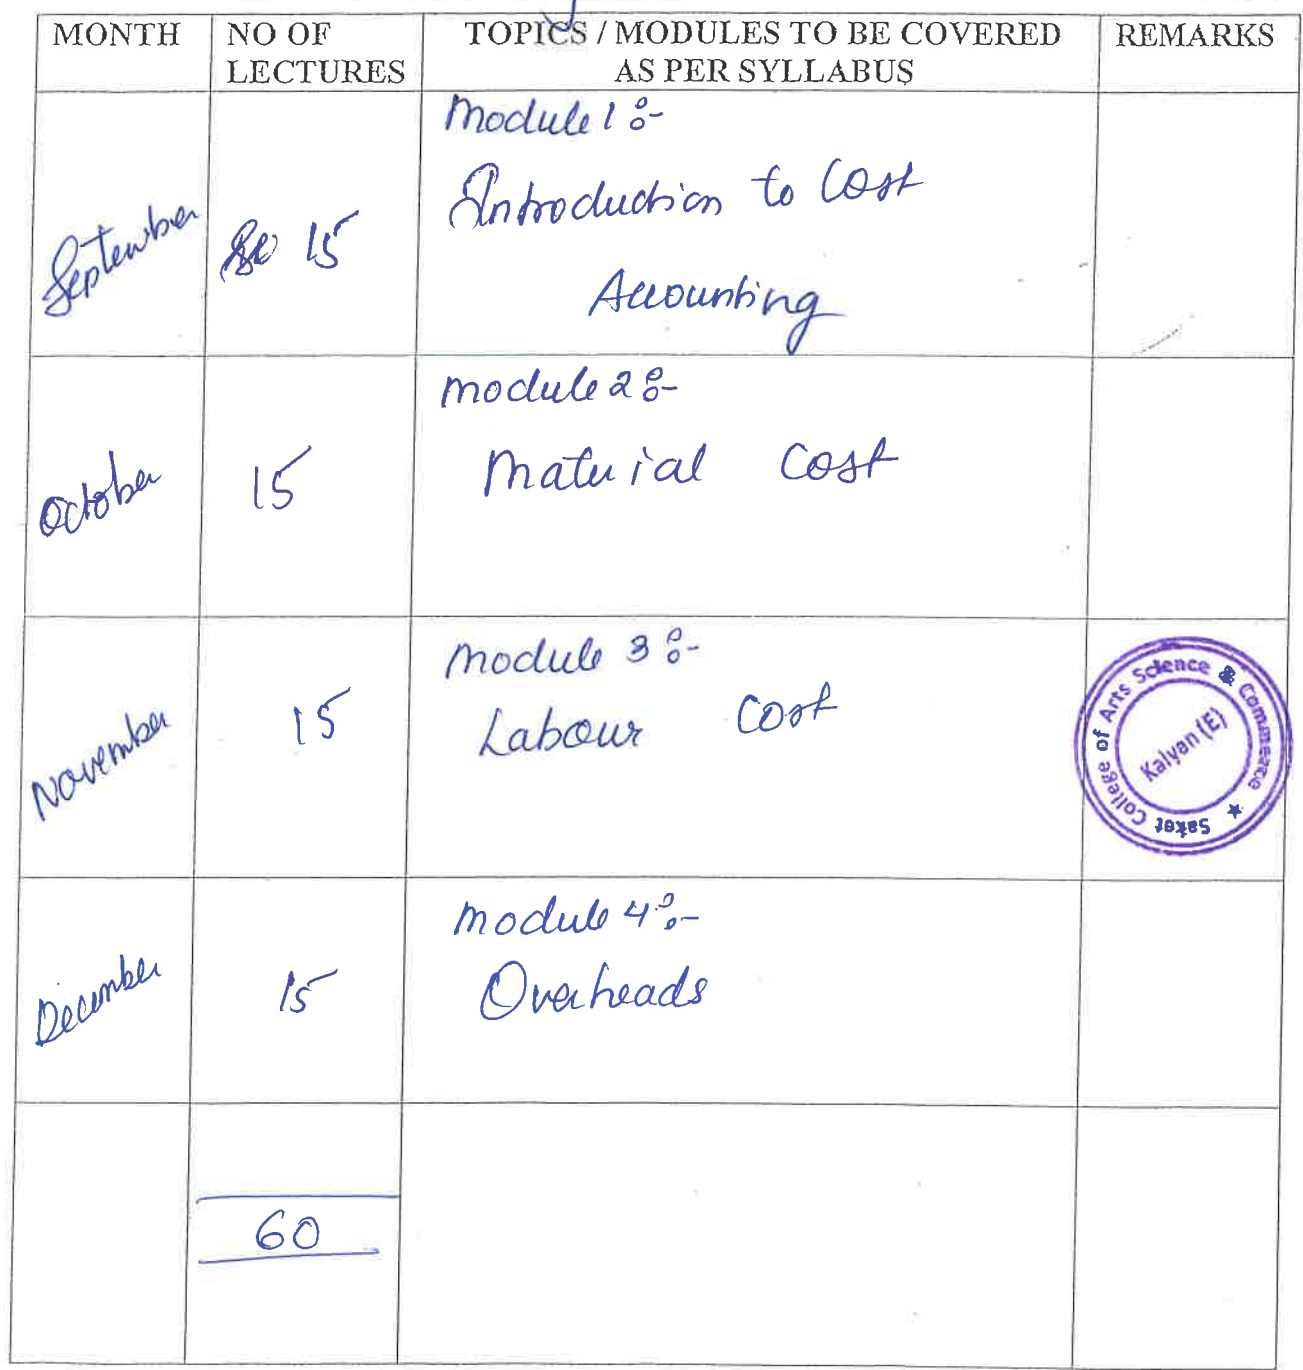 MONTH
NO OF
LECTURES
TOPICS / MODULES TO BE COVERED
AS PER SYLLABUS
REMARKS
September
15
Module 1 :-
Introduction to Cost
Accounting
October
15
Module 2 :-
Material Cost
November
15
Module 3 :-
Labour Cost
Saket College of Arts Science & Commerce
Kalyan (E)
December
15
Module 4 :-
Overheads
60